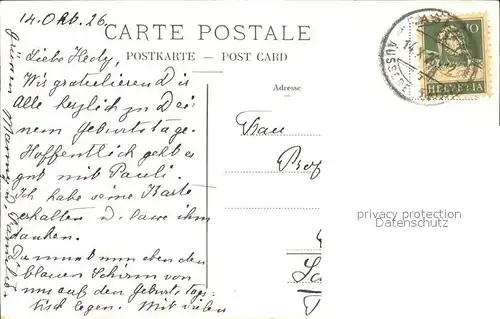 14. Okt. 26.
CARTE POSTALE
POSTKARTE – POST CARD
Liebe Hedy,
Wir gratulieren Dir
Alle herzlich zu Dei-
nem Geburtstage.
Hoffentlich geht es
gut mit Pauli.
Ich habe seine Karte
erhalten u. lasse ihm
danken.
Du musst nun eben den
blauen Schirm von
uns auf den Geburtstags-
tisch legen. Mit vielen
Adresse
Frau
Prof
10
HELVETIA
14.
privacy protection
Datenschutz